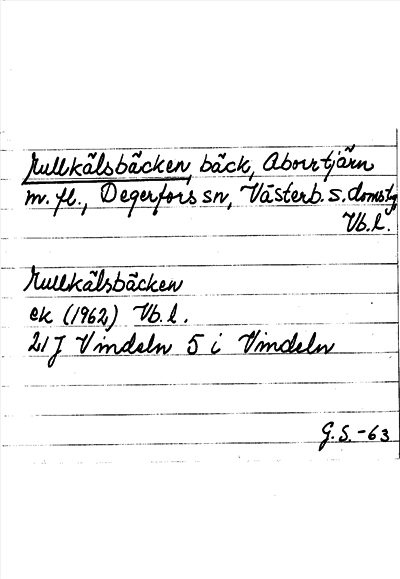 Mullkälsbäcken, bäck, Aborrtjärn
m. fl., Degerfors sn, Västerb. s. domsg,
Vb. l.
Mullkälsbäcken
ek (1962) Vb. l.
21J Vindeln 5 i Vindeln
G. S. -63